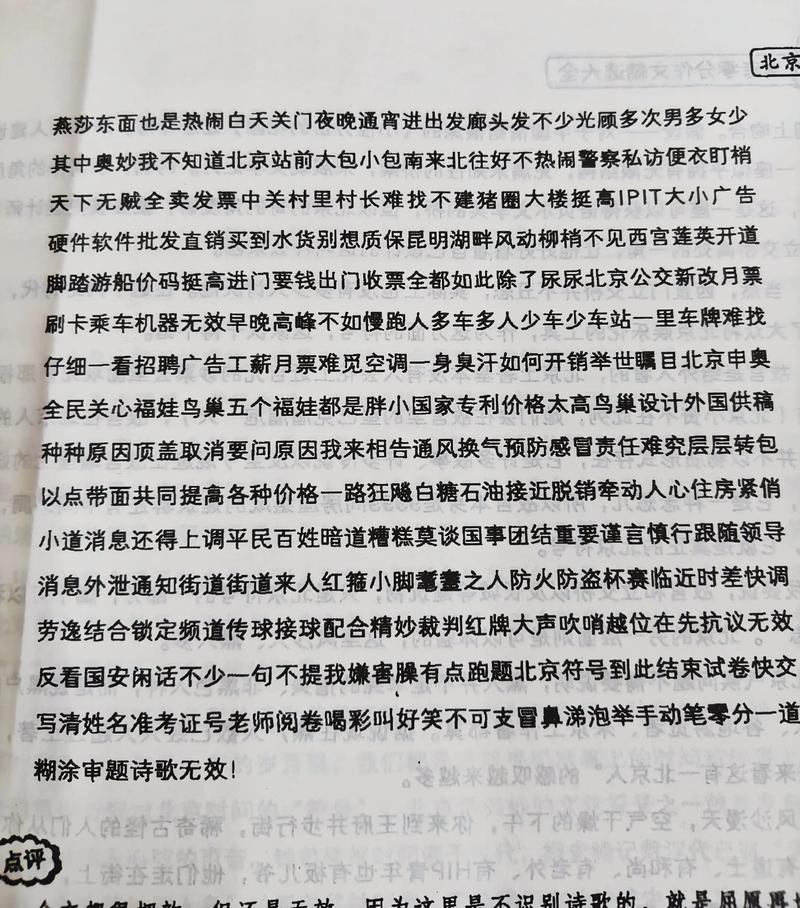 北京
燕莎东面也是热闹白天关门夜晚通宵进出发廊头发不少光顾多次男多女少
其中奥妙我不知道北京站前大包小包南来北往好不热闹警察私访便衣盯梢
天下无贼全卖发票中关村里村长难找不建猪圈大楼挺高IPIT大小广告
硬件软件批发直销买到水货别想质保昆明湖畔风动柳梢不见西宫莲英开道
脚踏游船价码挺高进门要钱出门收票全都如此除了尿尿北京公交新改月票
刷卡乘车机器无效早晚高峰不如慢跑人多车多人少车少车站一里车牌难找
仔细一看招聘广告工薪月票难觅空调一身臭汗如何开销举世瞩目北京申奥
全民关心福娃鸟巢五个福娃都是胖小国家专利价格太高鸟巢设计外国供稿
种种原因顶盖取消要问原因我来相告通风换气预防感冒责任难究层层转包
以点带面共同提高各种价格一路狂飚白糖石油接近脱销牵动人心住房紧俏
小道消息还得上调平民百姓暗道糟糕莫谈国事团结重要谨言慎行跟随领导
消息外泄通知街道街道来人红箍小脚耄耋之人防火防盗杯赛临近时差快调
劳逸结合锁定频道传球接球配合精妙裁判红牌大声吹哨越位在先抗议无效
反看国安闲话不少一句不提我嫌害臊有点跑题北京符号到此结束试卷快交
写清姓名准考证号老师阅卷喝彩叫好笑不可支冒鼻涕泡举手动笔零分一道
糊涂审题诗歌无效！
点评